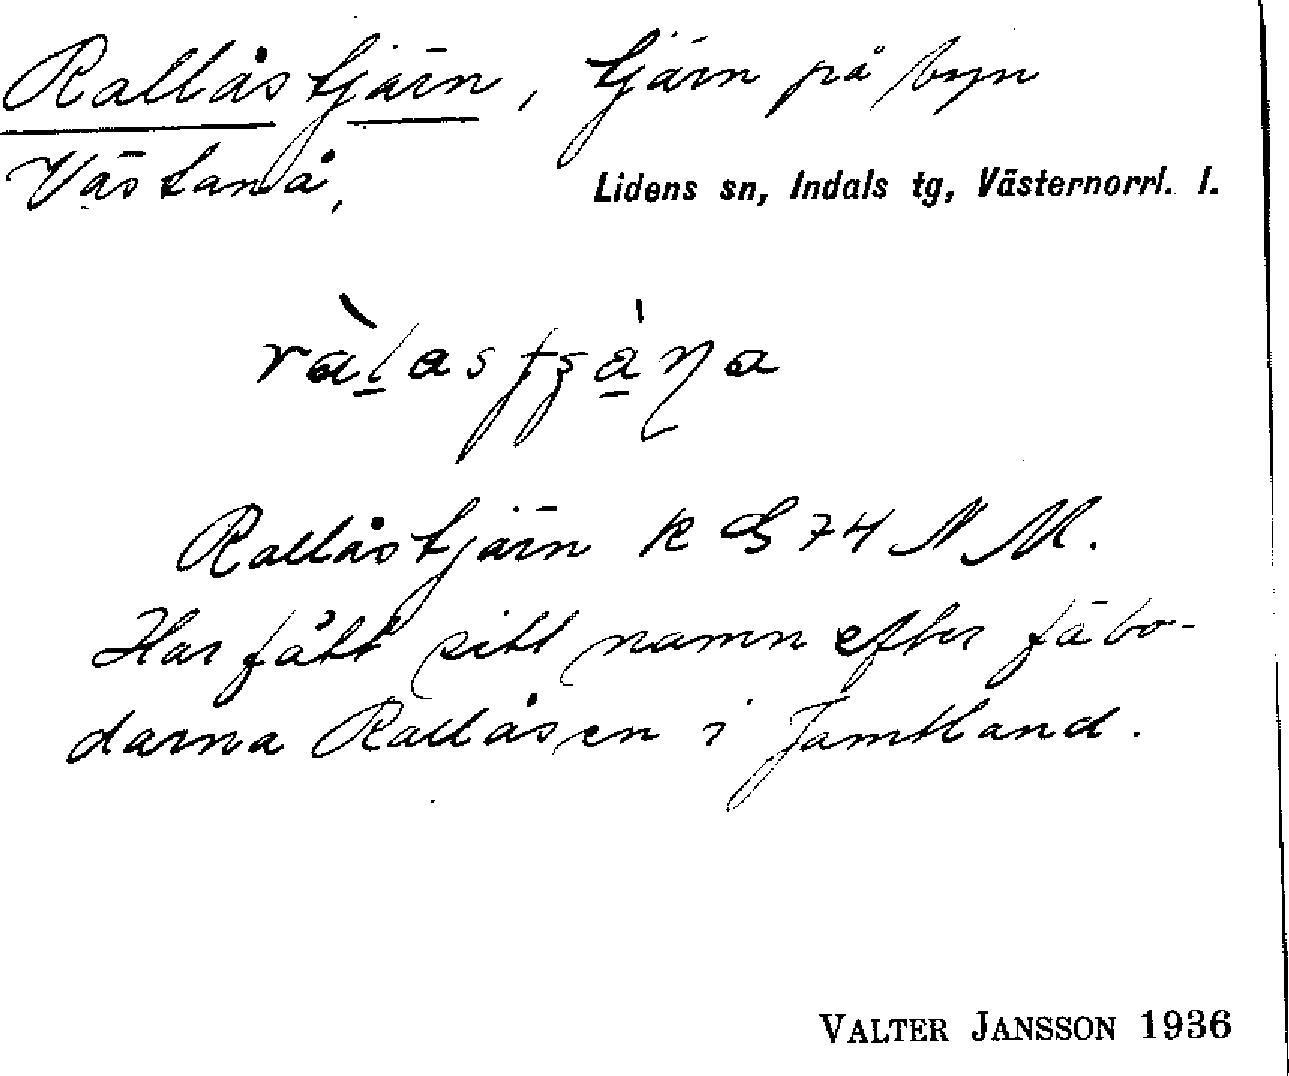 Rallåstjärn, tjärn på byn
Västanå,
Lidens sn, Indals tg, Västernorrl. l.
Rallåstjärn k S 74 N M.
Har fått sitt namn efter fäbo-
darna Rallåsen i Jämtland.
VALTER JANSSON 1936